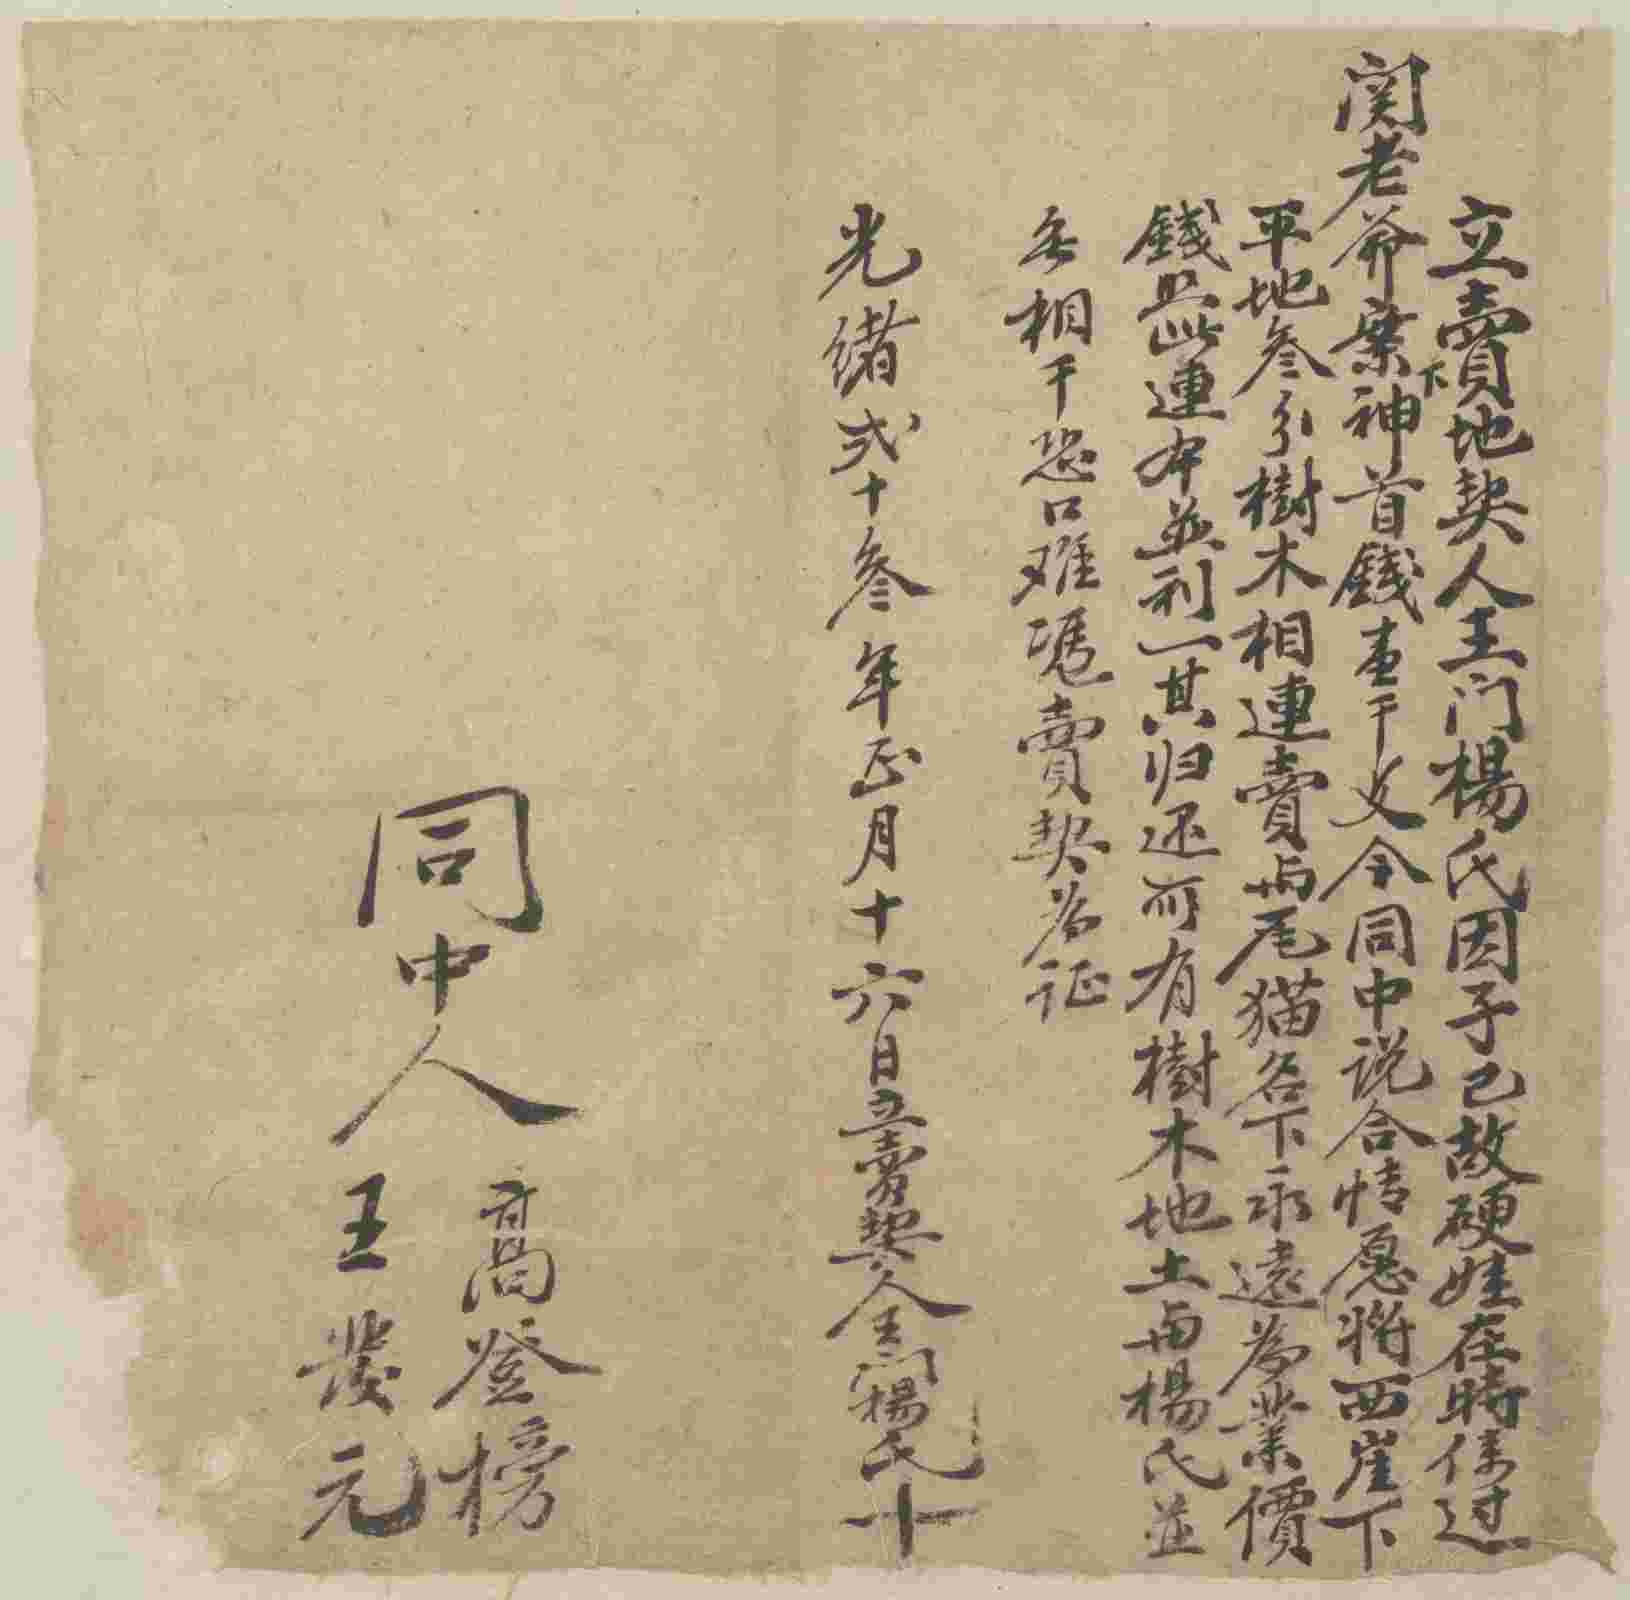 立賣地契人王门楊氏因子已故硬娃在時使过
関老爷案下神首錢壹千文今同中说合情愿将西崖下
平地叁引樹木相連賣与尾猫名下永遠為業價
錢照此連本並利一其归还所有樹木地土与楊氏並
无相干恐口难凴賣契為证
光緒弍十叁年正月十六日立賣契人王門楊氏十
同中人
高登榜
王發元